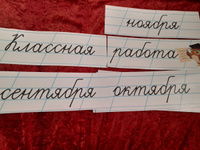 ноября
Классная работа
сентября октября